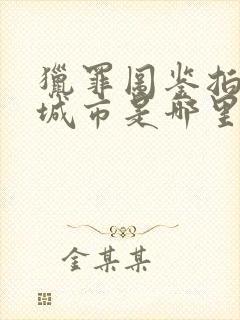 獵罪圖鉴拍
城市是哪里
金某某